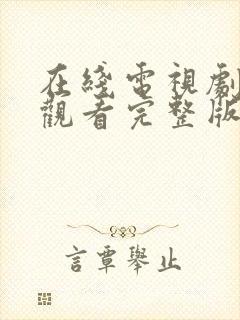 在綫電視劇
觀看完整版
言覃舉止